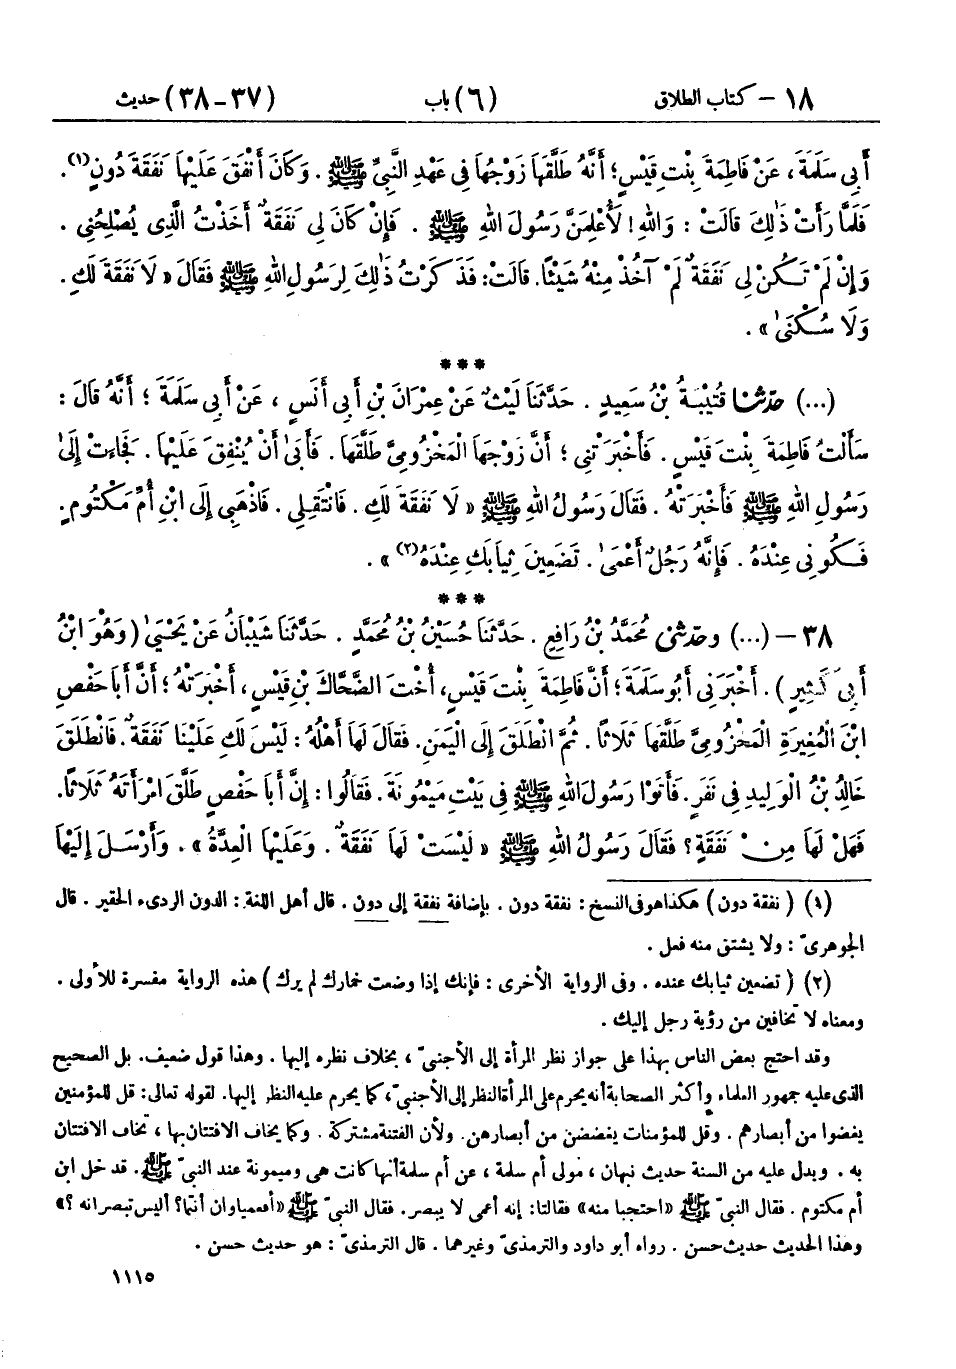 ١٨ – كتاب الطلاق (٦) باب (٣٧-٣٨) حديث
أَبِي سَلَمَةَ، عَنْ فَاطِمَةَ بِنْتِ قَيْسٍ؛ أَنَّهُ طَلَّقَهَا زَوْجُهَا فِي عَهْدِ النَّبِيِّ ﷺ. وَكَانَ أَنْفَقَ عَلَيْهَا نَفَقَةَ دُونٍ(١).
فَلَمَّا رَأَتْ ذَٰلِكَ قَالَتْ: وَاللهِ! لَأُعْلِمَنَّ رَسُولَ اللهِ ﷺ. فَإِنْ كَانَ لِي نَفَقَةٌ أَخَذْتُ الَّذِي يُصْلِحُنِي.
وَإِنْ لَمْ تَكُنْ لِي نَفَقَةٌ لَمْ آخُذْ مِنْهُ شَيْئًا. قَالَتْ: فَذَكَرْتُ ذَٰلِكَ لِرَسُولِ اللهِ ﷺ فَقَالَ «لَا نَفَقَةَ لَكِ.
وَلَا سُكْنَىٰ».
***
(...) حدّثنا قُتَيْبَةُ بْنُ سَعِيدٍ. حَدَّثَنَا لَيْثٌ عَنْ عِمْرَانَ بْنِ أَبِي أَنَسٍ، عَنْ أَبِي سَلَمَةَ؛ أَنَّهُ قَالَ:
سَأَلْتُ فَاطِمَةَ بِنْتَ قَيْسٍ. فَأَخْبَرَتْنِي؛ أَنَّ زَوْجَهَا الْمَخْزُومِيَّ طَلَّقَهَا. فَأَبَىٰ أَنْ يُنْفِقَ عَلَيْهَا. فَجَاءَتْ إِلَىٰ
رَسُولِ اللهِ ﷺ فَأَخْبَرَتْهُ. فَقَالَ رَسُولُ اللهِ ﷺ «لَا نَفَقَةَ لَكِ. فَانْتَقِلِي. فَاذْهَبِي إِلَى ابْنِ أُمِّ مَكْتُومٍ.
فَكُونِي عِنْدَهُ. فَإِنَّهُ رَجُلٌ أَعْمَىٰ. تَضَعِينَ ثِيَابَكِ عِنْدَهُ(٢)».
***
٣٨ – (...) وحدّثني مُحَمَّدُ بْنُ رَافِعٍ. حَدَّثَنَا حُسَيْنُ بْنُ مُحَمَّدٍ. حَدَّثَنَا شَيْبَانُ عَنْ يَحْيَىٰ (وَهُوَ ابْنُ
أَبِي كَثِيرٍ). أَخْبَرَنِي أَبُو سَلَمَةَ؛ أَنَّ فَاطِمَةَ بِنْتَ قَيْسٍ، أُخْتَ الضَّحَّاكِ بْنِ قَيْسٍ، أَخْبَرَتْهُ؛ أَنَّ أَبَا حَفْصِ
ابْنَ الْمُغِيرَةِ الْمَخْزُومِيَّ طَلَّقَهَا ثَلَاثًا. ثُمَّ انْطَلَقَ إِلَى الْيَمَنِ. فَقَالَ لَهَا أَهْلُهُ: لَيْسَ لَكِ عَلَيْنَا نَفَقَةٌ. فَانْطَلَقَ
خَالِدُ بْنُ الْوَلِيدِ فِي نَفَرٍ. فَأَتَوْا رَسُولَ اللهِ ﷺ فِي بَيْتِ مَيْمُونَةَ. فَقَالُوا: إِنَّ أَبَا حَفْصٍ طَلَّقَ امْرَأَتَهُ ثَلَاثًا.
فَهَلْ لَهَا مِنْ نَفَقَةٍ؟ فَقَالَ رَسُولُ اللهِ ﷺ «لَيْسَتْ لَهَا نَفَقَةٌ. وَعَلَيْهَا الْعِدَّةُ». وَأَرْسَلَ إِلَيْهَا
(١) (نفقة دون) هكذا هو في النسخ: نفقة دون. بإضافة نفقة إلى دون. قال أهل اللغة: الدون الردىء الحقير. قال
الجوهريّ: ولا يشتق منه فعل.
(٢) (تضعين ثيابك عنده. وفي الرواية الأخرى: فإنك إذا وضعت خمارك لم يرك) هذه الرواية مفسرة للأولى.
ومعناه لا تخافين من رؤية رجل إليك.
وقد احتج بعض الناس بهذا على جواز نظر المرأة إلى الأجنبيّ، بخلاف نظره إليها. وهذا قول ضعيف. بل الصحيح
الذي عليه جمهور العلماء وأكثر الصحابة أنه يحرم على المرأة النظر إلى الأجنبيّ، كما يحرم عليه النظر إليها. لقوله تعالى: قل للمؤمنين
يغضوا من أبصارهم. وقل للمؤمنات يغضضن من أبصارهن. ولأن الفتنة مشتركة. وكما يخاف الافتتان بها، تخاف الافتتان
به. ويدل عليه من السنة حديث نبهان، مولى أم سلمة، عن أم سلمة أنها كانت هي وميمونة عند النبيّ ﷺ. فدخل ابن
أم مكتوم. فقال النبيّ ﷺ «احتجبا منه» فقالتا: إنه أعمى لا يبصر. فقال النبيّ ﷺ «أفعمياوان أنتما؟ أليس تبصرانه؟»
وهذا الحديث حديث حسن. رواه أبو داود والترمذيّ وغيرهما. قال الترمذيّ: هو حديث حسن.
١١١٥